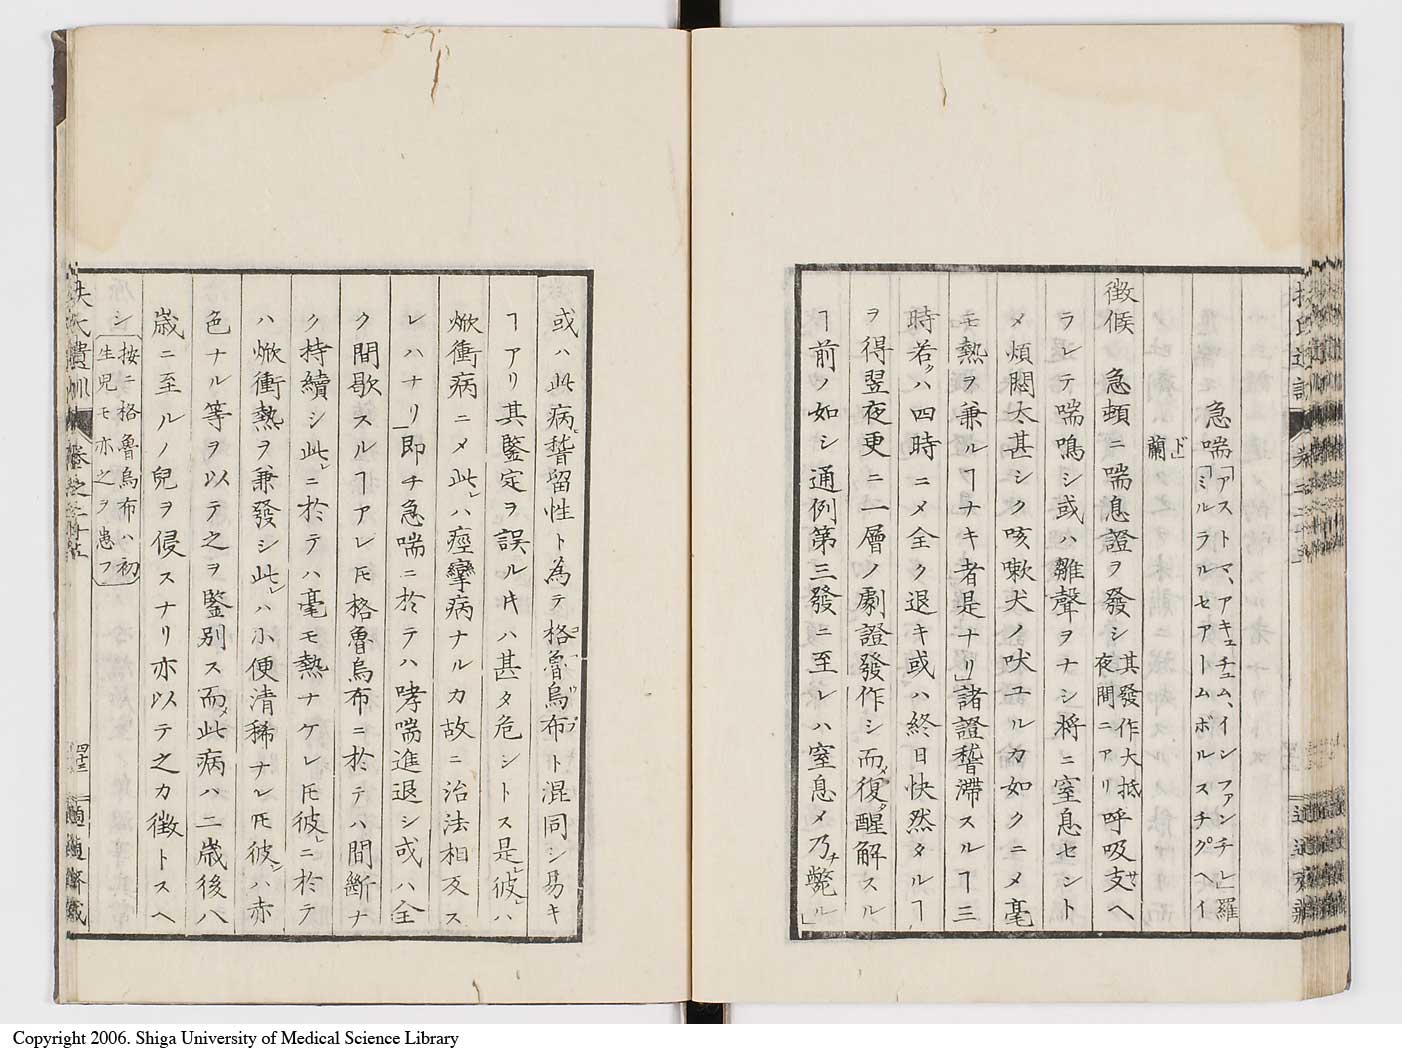 急喘「アストマ、アキュチュム、インファンチレ」羅
「ミルラルセアトムボルスチグヘイド」蘭
徴候 急頓ニ喘息證ヲ發シ其發作大抵夜間ニアリ呼吸支ヘ
ラレテ喘鳴シ或ハ雛聲ヲナシ将ニ窒息セント
メ煩悶太甚シク咳嗽犬ノ吠ユルカ如クニメ毫
モ熱ヲ兼ルヿナキ者是ナリ」諸證稽滯スルヿ三
時若クハ四時ニメ全ク退キ或ハ終日快然タルヿ
ヲ得翌夜更ニ一層ノ劇證發作シ而メ復タ醒解スル
ヿ前ノ如シ通例第三發ニ至レハ窒息メ乃チ斃ル」
或ハ此病稽留性ト為テ格魯烏布ト混同シ易キ
ヿアリ其鑒定ヲ誤ル𪜈ハ甚タ危シトス是レ彼レハ
焮衝病ニメ此レハ痙攣病ナルカ故ニ治法相反ス
レハナリ」即チ急喘ニ於テハ哮喘進退シ或ハ全
ク間歇スルヿアレ𪜈格魯烏布ニ於テハ間斷ナ
ク持續シ此レニ於テハ毫モ熱ナケレ𪜈彼レニ於テ
ハ焮衝熱ヲ兼發シ此レハ小便清稀ナレ𪜈彼レハ赤
色ナル等ヲ以テ之ヲ鑒別ス而メ此病ハ二歳後八
歳ニ至ルノ兒ヲ侵スナリ亦以テ之カ徴トスヘ
シ按ニ格魯烏布ハ初生兒モ亦之ヲ患フ
扶氏遺訓
四十三
適適齋藏
Copyright 2006. Shiga University of Medical Science Library